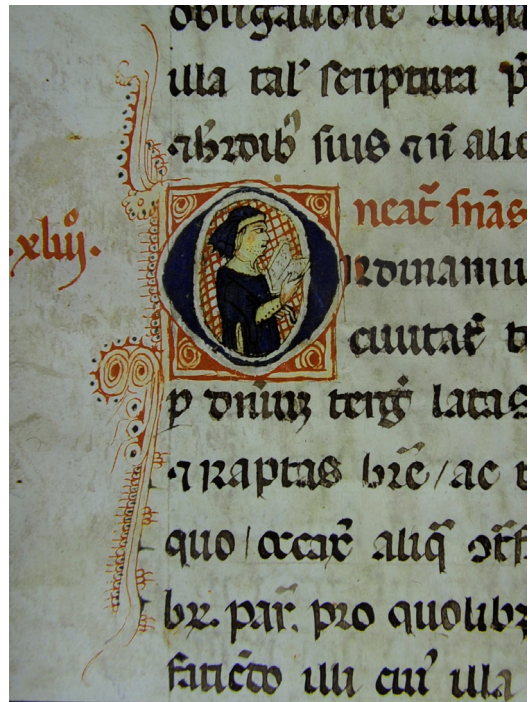 obligatione aliqu
illa tal' scriptura p
⁊ h̄rdib' suis ⁊ ī alic
.xliiij°. neat̄ sn̄as
Ordinamu
ciuitat̄ t
p dnium terg' latas
⁊ raptas br̄e/ac
quo/occax̄ aliq̄
br. par. pro quolibz
faticto illi cui' illa